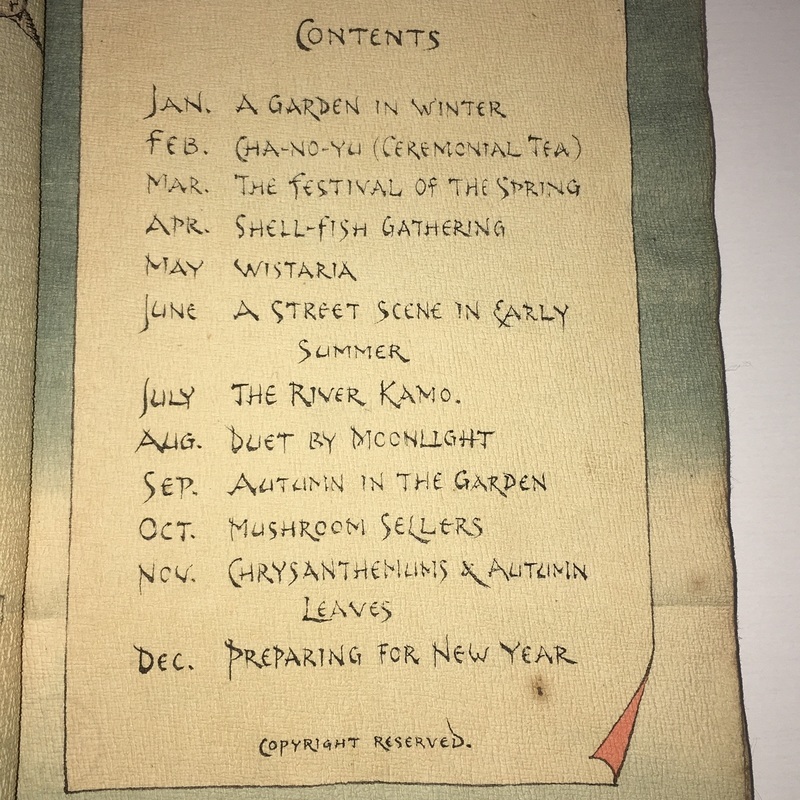 CONTENTS
JAN. A GARDEN IN WINTER
FEB. CHA-NO-YU (CEREMONIAL TEA)
MAR. THE FESTIVAL OF THE SPRING
APR. SHELL-FISH GATHERING
MAY WISTARIA
JUNE A STREET SCENE IN EARLY
SUMMER
JULY THE RIVER KAMO.
AUG. DUET BY MOONLIGHT
SEP. AUTUMN IN THE GARDEN
OCT. MUSHROOM SELLERS
NOV. CHRYSANTHEMUMS & AUTUMN
LEAVES
DEC. PREPARING FOR NEW YEAR
COPYRIGHT RESERVED.